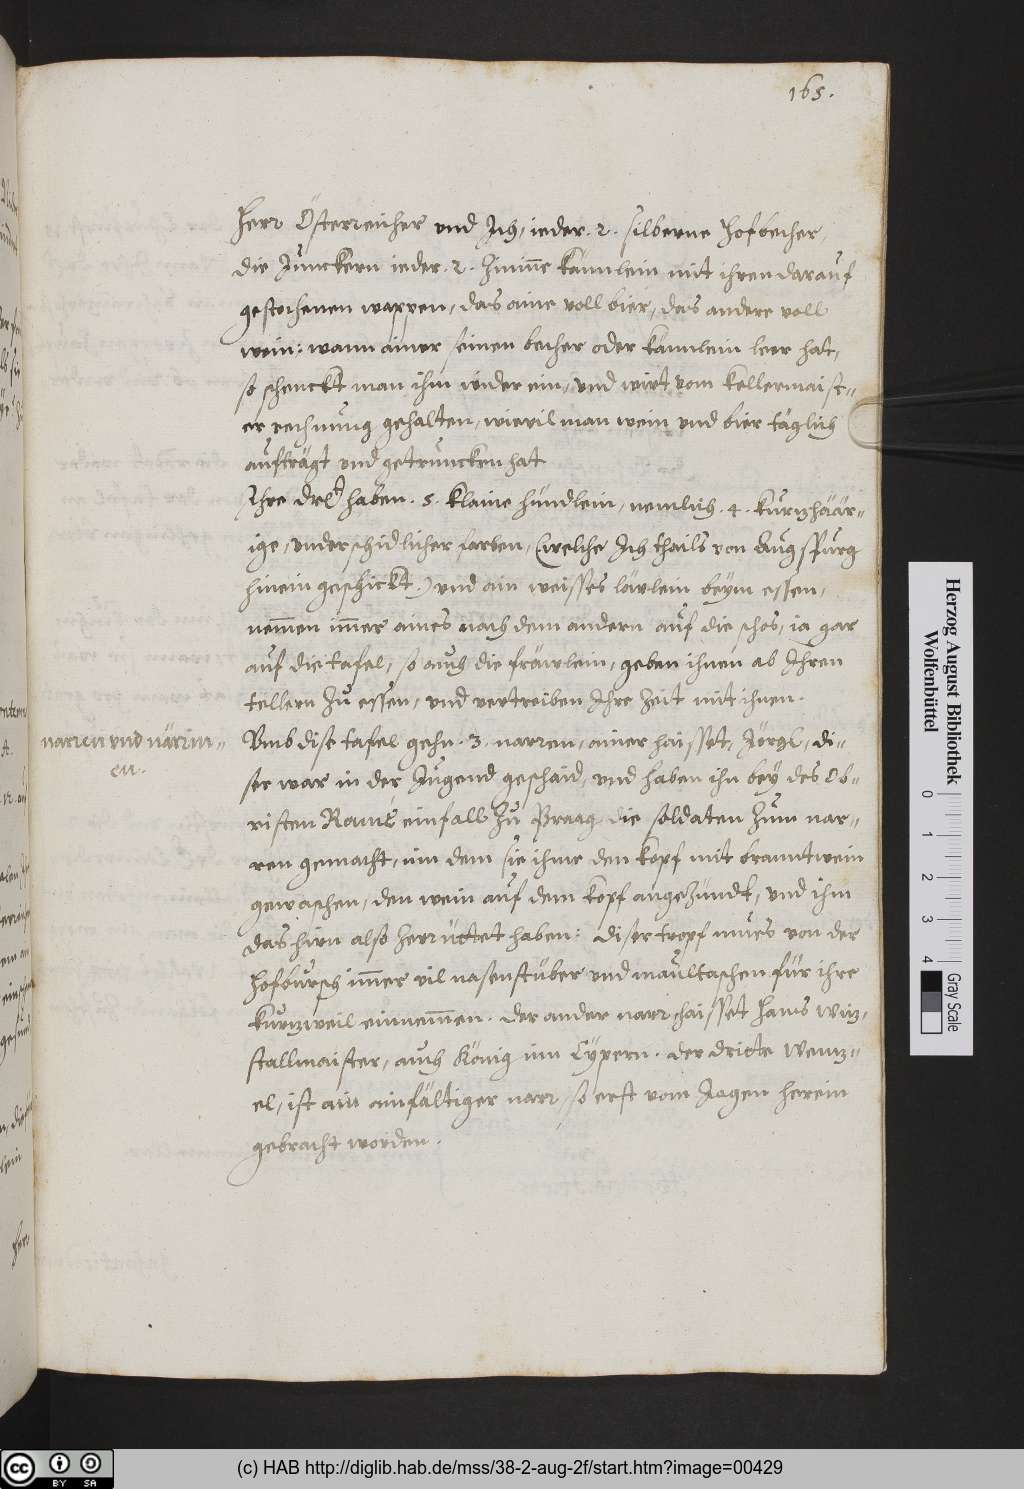 165.
Herr Österreicher vnd Ich, ieder. 2. silberne hofbecher,
die Junckern ieder. 2. Zinine kännlein mit ihren darauf
gestochenen wappen, das aine voll bier, das andere voll
wein: wann ainer seinen becher oder känlein leer hat,
so schenckt man ihm wider ein, vnd wirt vom kellermaist=
er rechnung gehalten, wievil man wein vnd bier täglich
aufträgt vnd getruncken hat
Ihre haben. 5. klaine hündlein, nemlich. 4. kurzhäär=
ige, vnderschidlicher farben, (welche Ich thails von Augspurg
hinein geschickt.) vnd ain weisses löwlein beym essen,
nemmen immer aines nach dem andern auf die schos, ia gar
auf die tafel, so auch die fräwlein, geben ihnen ab Ihren
tellern zu essen, vnd vertreiben Ihre Zeit mit ihnen.
narren vnd närrin=
en.
Vmb dise tafel gehn. 3. narren, ainer haisset, Jörgl, di=
ser war in der Jugend geschaid, vnd haben ihn bey des Ob=
risten Ramé einfall zu Praag, die soldaten zum nar=
ren gemacht, in dem sie ihme den kopf mit branntwein
gewaschen, den wein auf dem kopf angezündt, vnd ihm
das hirn also zerrüttet haben: diser tropf mues von der
hofbursch immer vil nasenstüber vnd maultaschen für ihre
kurzweil einnemmen. der ander narr haisset Hans
stallmaister, auch König in Cypern. der dritte Wenz=
el, ist ain ainfältiger narr, so erst vom Jagen herein
gebracht worden.
Herzog August Bibliothek
Wolfenbüttel
0 1 2 3 4
Gray Scale
cc BY SA
(c) HAB http://diglib.hab.de/mss/38-2-aug-2f/start.htm?image=00429